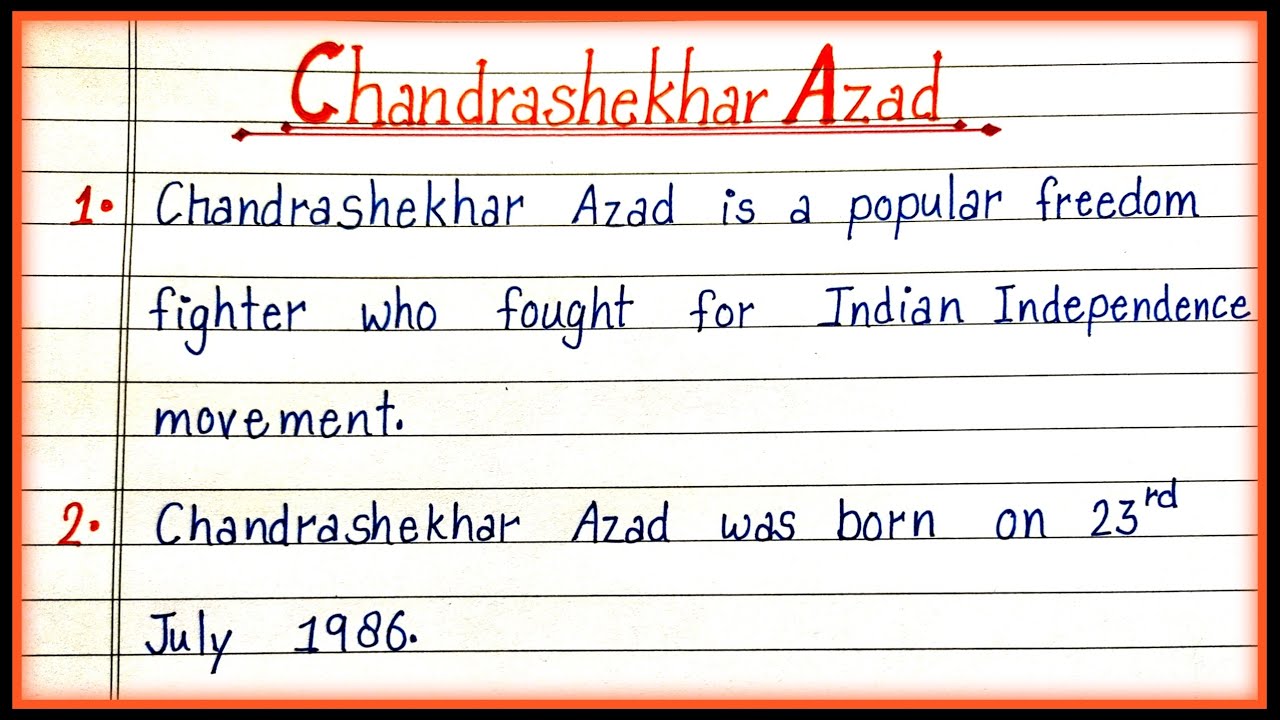 Chandrashekhar Azad
1. Chandrashekhar Azad is a popular freedom
fighter who fought for Indian Independence
movement.
2. Chandrashekhar Azad was born on 23rd
July 1986.